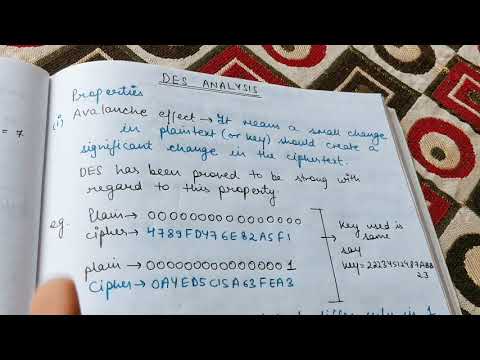 DES ANALYSIS
Properties
(i) Avalanche effect → It means a small change
in plaintext (or key) should create a
significant change in the ciphertext.
DES has been proved to be strong with
regard to this property.
= 7
eg. Plain → 0000000000000000
Cipher → 4789FD476E82A5F1
Key used is
same
say
Key = 22234512987ABB
23
plain → 0000000000000001
Cipher → 0A4ED5C15A63FEA3
differ only in 1